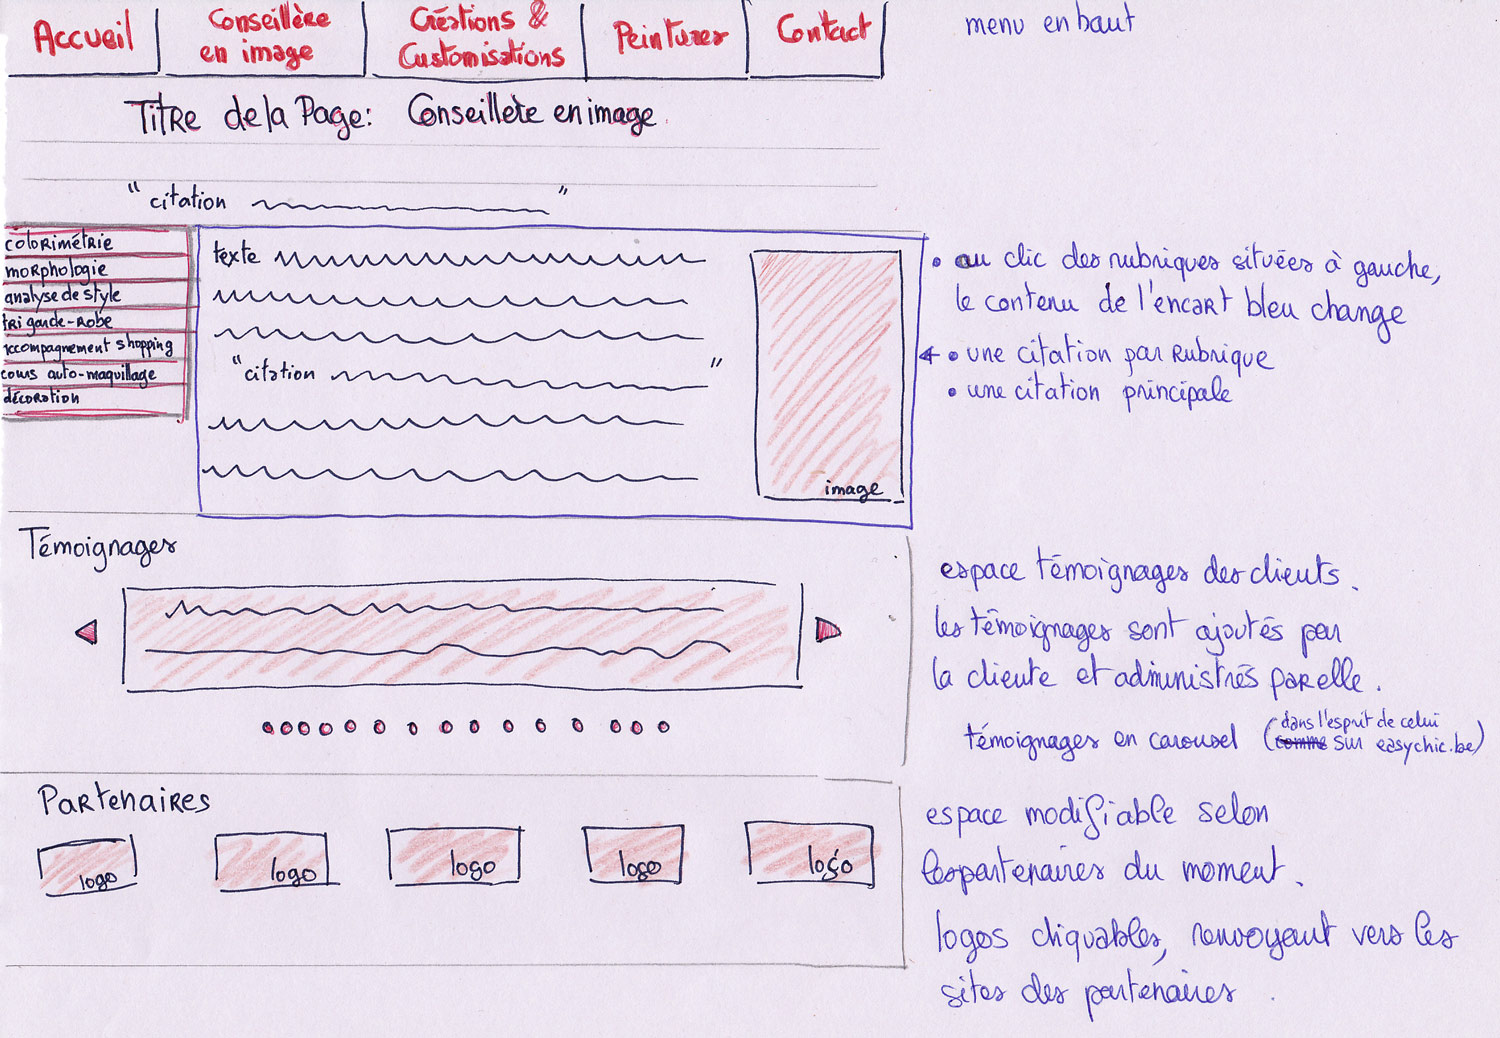 Accueil
Conseillère
en image
Créations &
Customisations
Peintures
Contact
menu en haut
Titre de la Page: Conseillère en image
"citation"
colorimétrie
morphologie
analyse de style
tri garde-robe
accompagnement shopping
cours auto-maquillage
décoration
texte
"citation"
image
• au clic des rubriques situées à gauche,
le contenu de l'encart bleu change
• une citation par rubrique
• une citation principale
Témoignages
espace témoignages des clients.
les témoignages sont ajoutés par
la cliente et administrés par elle.
témoignages en carousel (dans l'esprit de celui
comme sur easychic.be)
Partenaires
logo
logo
logo
logo
logo
espace modifiable selon
les partenaires du moment.
logos cliquables, renvoyant vers les
sites des partenaires.